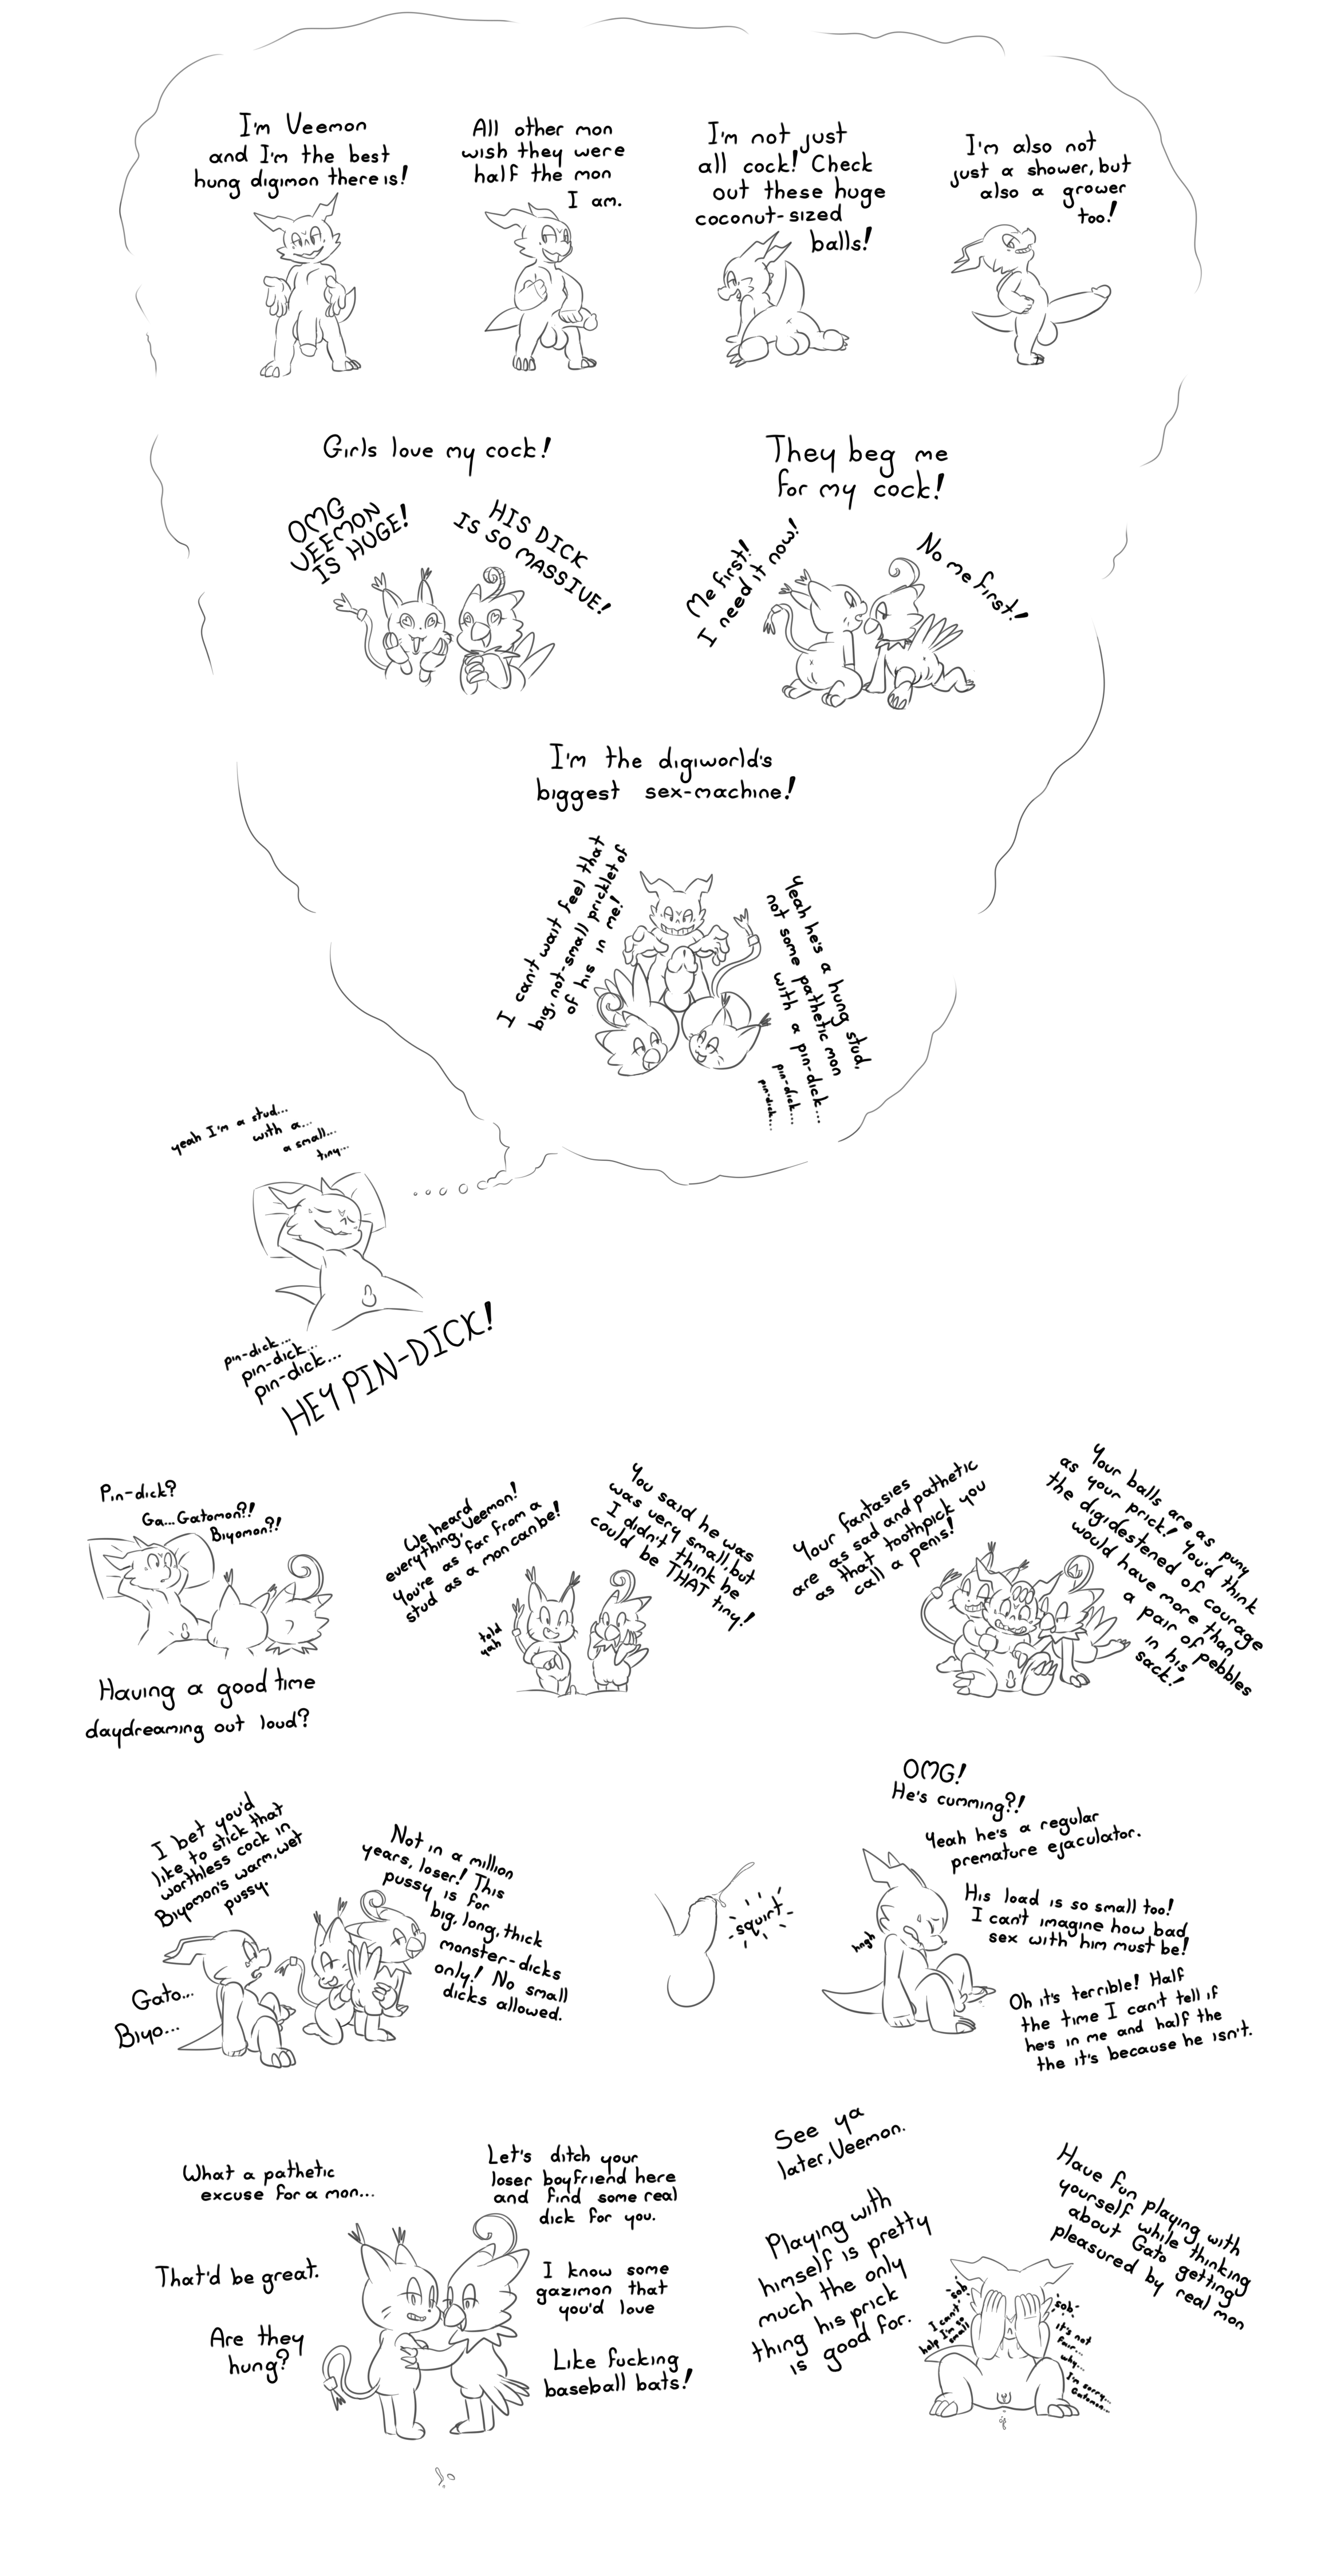 I'm Veemon
and I'm the best
hung digimon there is!
All other mon
wish they were
half the mon
I am.
I'm not just
all cock! Check
out these huge
coconut-sized
balls!
I'm also not
just a shower, but
also a grower
too!
Girls love my cock!
OMG
VEEMON
IS HUGE!
HIS DICK
IS SO MASSIVE!
They beg me
for my cock!
Me first!
I need it now!
No me first!
I'm the digiworld's
biggest sex-machine!
I can't wait feel that
big, not-small pricklet of
of his in me!
Yeah he's a hung stud,
not some pathetic mon
with a pin-dick...
pin-dick...
pin-dick...
yeah I'm a stud...
with a...
a small...
tiny...
pin-dick...
pin-dick...
pin-dick...
HEY PIN-DICK!
Pin-dick?
Ga...Gatomon?!
Biyomon?!
Having a good time
daydreaming out loud?
We heard
everything, Veemon!
You're as far from a
stud as a mon can be!
told
yah
You said he was
was very small, but
I didn't think he
could be THAT tiny!
Your fantasies
are as sad and pathetic
as that toothpick you
call a penis!
Your balls are as puny
as your prick! You'd think
the digidestened of courage
would have more than
a pair of pebbles
in his
sack!
I bet you'd
like to stick that
worthless cock in
Biyomon's warm, wet
pussy.
Gato...
Biyo...
Not in a million
years, loser! This
pussy is for
big, long, thick
monster-dicks
only! No small
dicks allowed.
-squirt-
hngh
OMG!
He's cumming?!
Yeah he's a regular
premature ejaculator.
His load is so small too!
I can't imagine how bad
sex with him must be!
Oh it's terrible! Half
the time I can't tell if
he's in me and half the
the it's because he isn't.
What a pathetic
excuse for a mon...
Let's ditch your
loser boyfriend here
and find some real
dick for you.
That'd be great.
I know some
gazimon that
you'd love
Are they
hung?
Like fucking
baseball bats!
See ya
later, Veemon.
Playing with
himself is pretty
much the only
thing his prick
is good for.
Have fun playing with
yourself while thinking
about Gato getting
pleasured by real mon
-sob-
I can't
help I'm so
small
-sob-
it's not
fair...
why...
I'm sorry...
Gatomon...